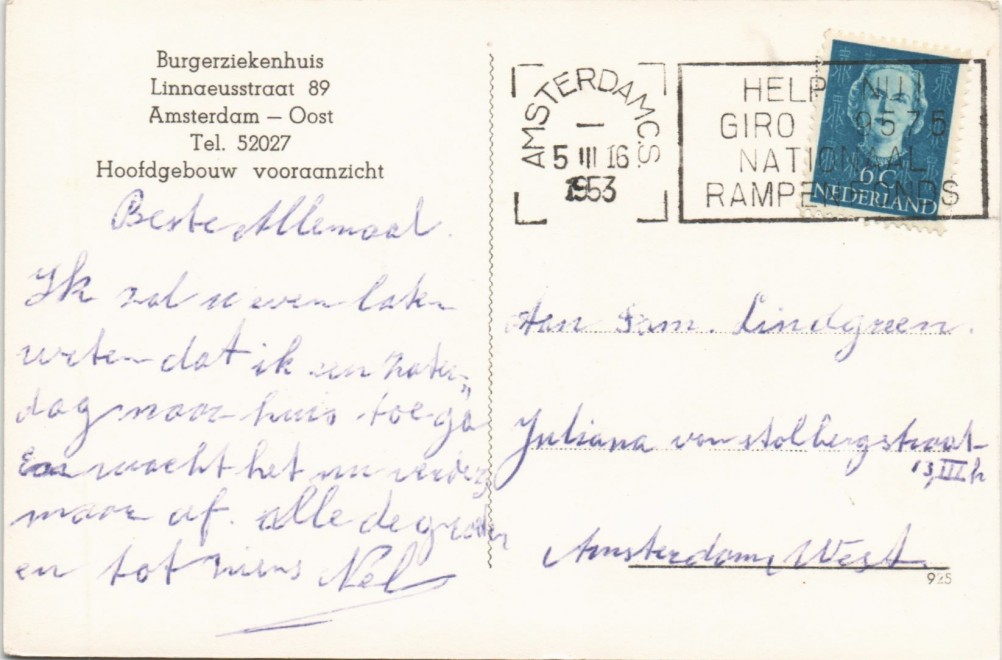 Burgerziekenhuis
Linnaeusstraat 89
Amsterdam – Oost
Tel. 52027
Hoofdgebouw vooraanzicht
Beste Allemaal.
Ik zal u even laten
weten dat ik en zater„
dag naar huis toe ga
En wacht het nu verder
maar af. alle de groeten
en tot ziens Nel
AMSTERDAM C.S.
5 III 16
1953
HELP NU
GIRO 9575
NATIONAAL
RAMPENFONDS
6 C
NEDERLAND
Aan Fam. Lindgreen.
Juliana van Stolbergstraat
13 III h
Amsterdam West
925